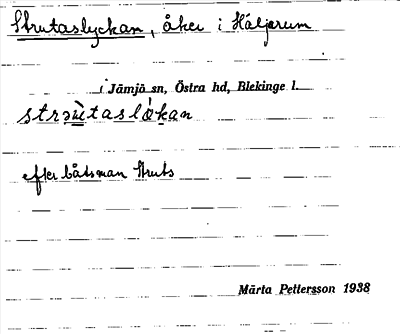 Strutaslyckan, åker i Häljarum
i Jämjö sn, Östra hd, Blekinge l.
strutaslökan
efter båtsman Struts
Märta Pettersson 1938